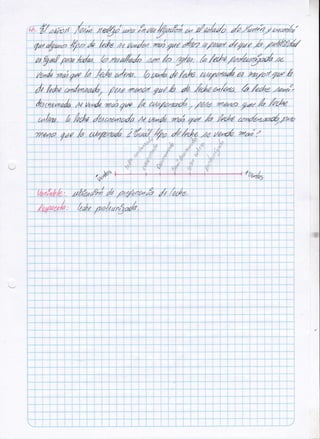 El señor Jesús realizó una investigación en el estado de Junín y encontró
que algunos tipos de leche se venden más que otros a pesar de que la publicidad
es igual para todas. Los resultados son los sgtes. La leche pasteurizada se
vende más que la leche entera. la venta de leche evaporada es mayor que la
de leche condensada, pero menor que la de leche entera. La leche semi-
descremada se vende más que la evaporada, pero menos que la leche
entera. la leche descremada se vende más que la leche condensada, pero
menos que la evaporada. ¿Cuál tipo de leche se vende más?
- Ventas
condensada
evaporada
entera
pasteurizada
+ Ventas
Variable: ubicación de de leche.
Respuesta: leche pasteurizada.